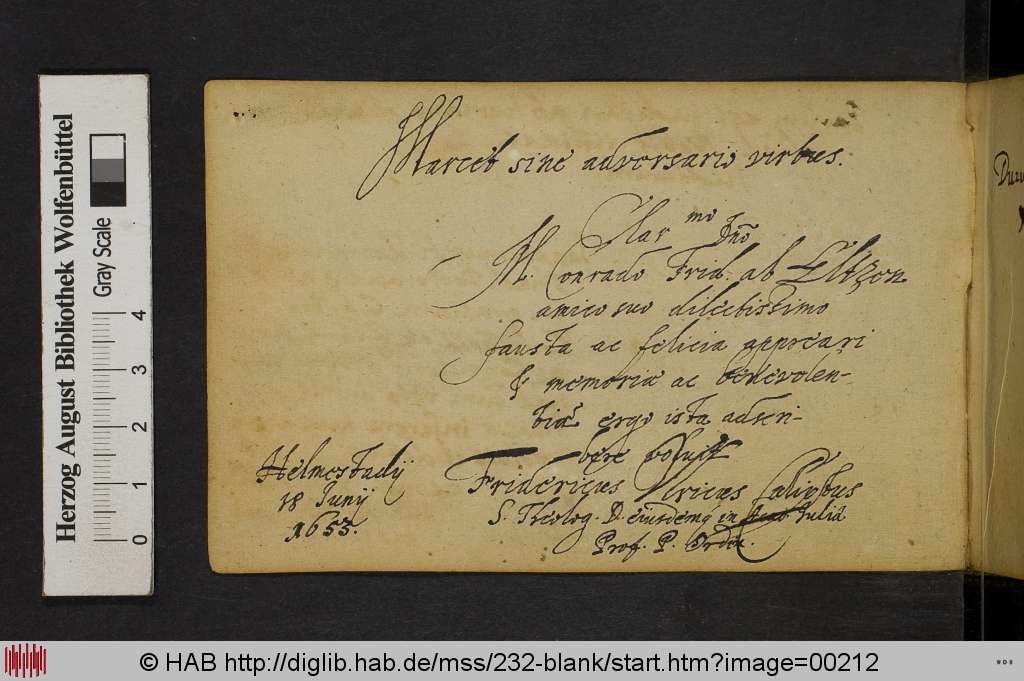 Marcet sine adversario virtus.
Clar mo Dno
M. Conrado Frid. ab Eltzen
amico suo dilectissimo
fausta ac felicia apprecari
& memoriæ ac benevolen-
tiæ ergo ista adscri-
bere voluit
Fridericus Ulricus Calixtus
S. Theolog. D. eiusdemq in Julia
Prof. P. Ordin.
Helmestadij
18 Junij
1653.
Herzog August Bibliothek Wolfenbüttel
Gray Scale
0 1 2 3 4
© HAB http://diglib.hab.de/mss/232-blank/start.htm?image=00212